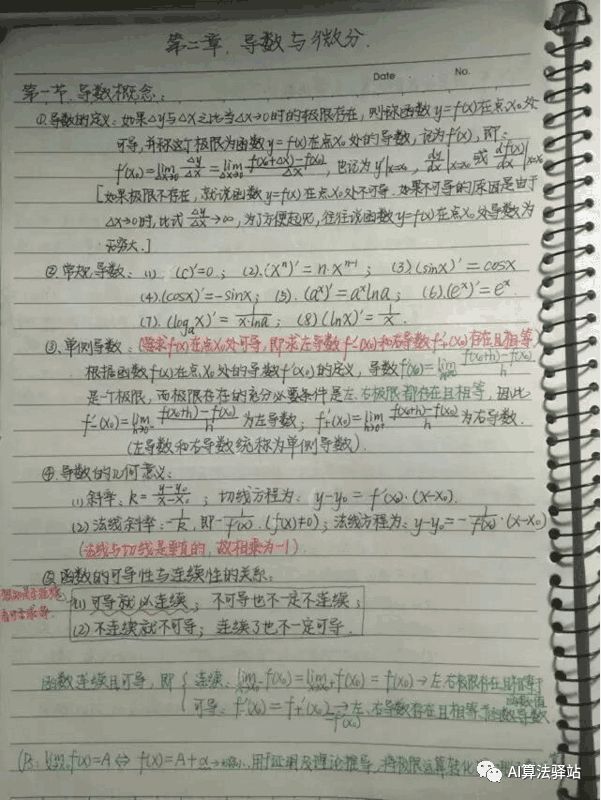 第二章. 导数与微分.
Date No.
第一节. 导数概念:
①.导数的定义: 如果△y与△x之比当△x→0时的极限存在, 则称函数y=f(x)在点x₀处
可导, 并称这个极限为函数y=f(x)在点x₀处的导数, 记为f'(x₀), 即:
f'(x₀)=lim△x→0 △y/△x = lim△x→0 (f(x₀+△x)-f(x₀))/△x, 也记为 y'|x=x₀, dy/dx|x=x₀ 或 df(x)/dx|x=x₀
[如果极限不存在, 就说函数y=f(x)在点x₀处不可导. 如果不可导的原因是由于
△x→0时, 比式 △y/△x→∞, 为了方便起见, 往往说函数y=f(x)在点x₀处导数为
无穷大.]
② 常规导数: (1). (C)'=0; (2).(xⁿ)'=n·xⁿ⁻¹; (3)(sinx)'=cosx
(4).(cosx)'=-sinx; (5).(aˣ)'=aˣlna; (6).(eˣ)'=eˣ
(7).(logₐx)'=1/(x·lna); (8)(lnx)'=1/x.
③.单侧导数: (要求f(x)在点x₀处可导, 即求左导数f'₋(x₀)和右导数f'₊(x₀)存在且相等)
根据函数f(x)在点x₀处的导数f'(x₀)的定义, 导数f'(x₀)=lim h→0 (f(x₀+h)-f(x₀))/h
是一个极限, 而极限存在的充分必要条件是左.右极限都存在且相等, 因此
f'₋(x₀)=lim h→0⁻ (f(x₀+h)-f(x₀))/h 为左导数; f'₊(x₀)=lim h→0⁺ (f(x₀+h)-f(x₀))/h 为右导数.
(左导数和右导数统称为单侧导数).
④ 导数的几何意义:
(1)斜率: k=(y-y₀)/(x-x₀); 切线方程为: y-y₀=f'(x₀)·(x-x₀).
(2)法线斜率: -1/k, 即-1/f'(x₀).(f'(x)≠0); 法线方程为: y-y₀=-1/f'(x₀)·(x-x₀)
(法线与切线是垂直的, 故相乘为-1)
⑤函数的可导性与连续性的关系:
(1)可导就必连续; 不可导也不一定不连续;
(2)不连续就不可导; 连续了也不一定可导.
函数连续且可导, 即 { 连续: lim x→x₀⁻ f(x₀)=lim x→x₀⁺ f(x₀)=f(x₀)→左.右极限存在且相等于
函数值
可导: f'₋(x₀)=f'₊(x₀)→左、右导数存在且相等
f(x₀)
(Ps: lim f(x)=A⇔f(x)=A+α→ 用于证明及理论推导, 将极限运算转化
AI算法驿站